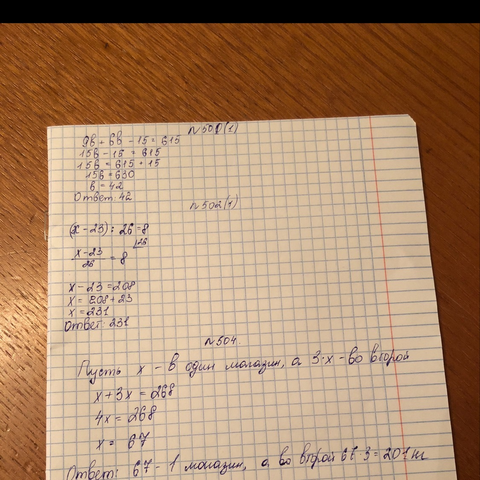 №501(1)
9в + 6в - 15 = 615
15в - 15 = 615
15в = 615 + 15
15в = 630
в = 42
Ответ: 42
№502(1)
(х - 23) : 26 = 8
х - 23 / 26 = 8 |·26
х - 23 = 208
х = 208 + 23
х = 231
Ответ: 231
№504.
Пусть х - в один магазин, а 3·х - во второй
х + 3х = 268
4х = 268
х = 67
Ответ: 67 - 1 магазин, а во второй 3 = 201 кг